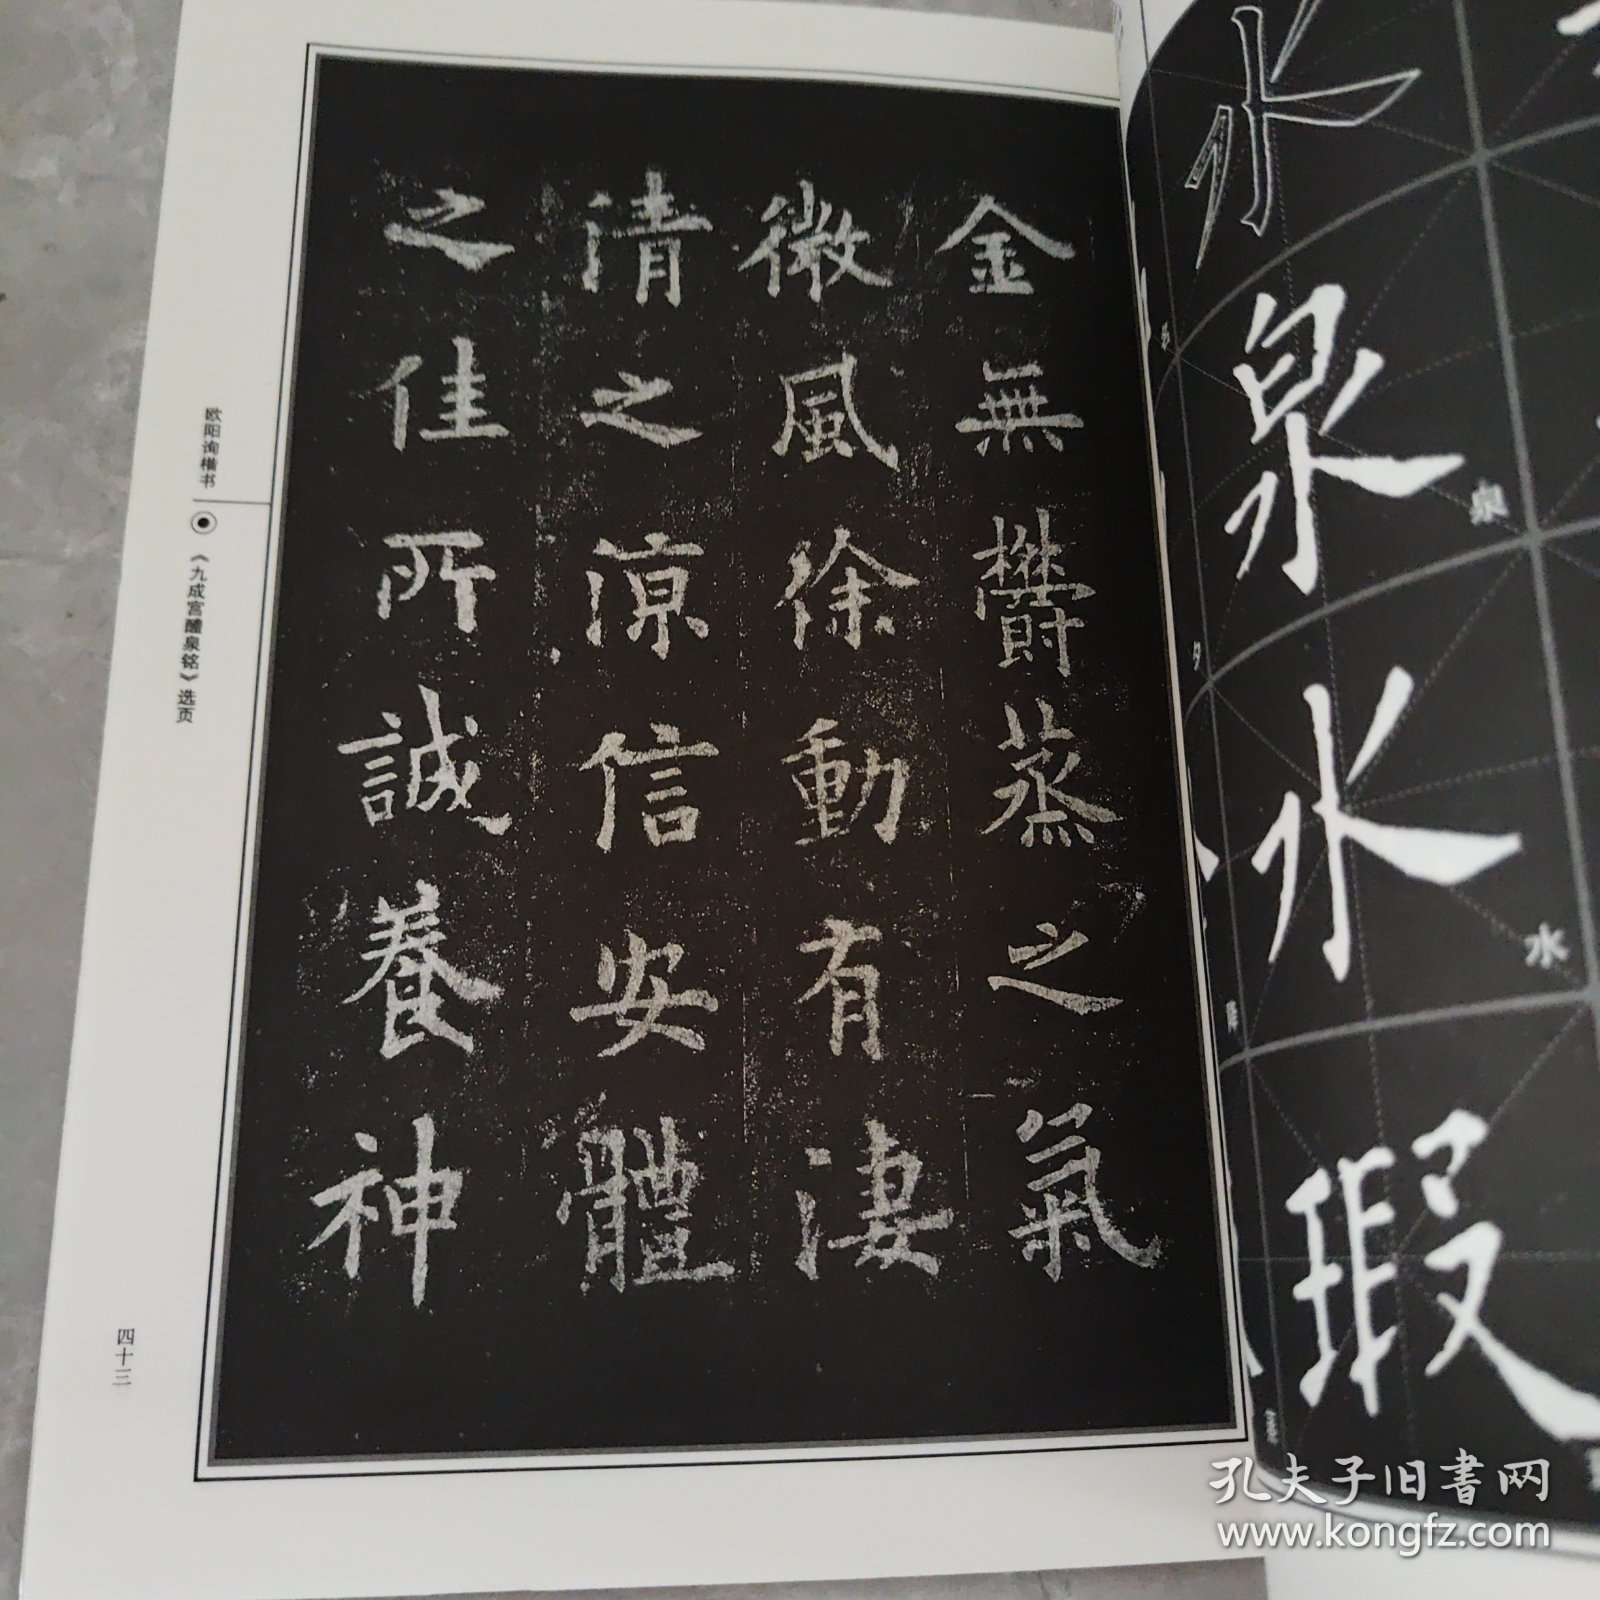 金無欝蒸之氣
微風徐動有淒
清之涼信安體
之佳所誠養神
欧阳询楷书
《九成宫醴泉铭》选页
四十三
水
泉
泉
水
水
瑕
孔夫子旧书网
www.kongfz.com